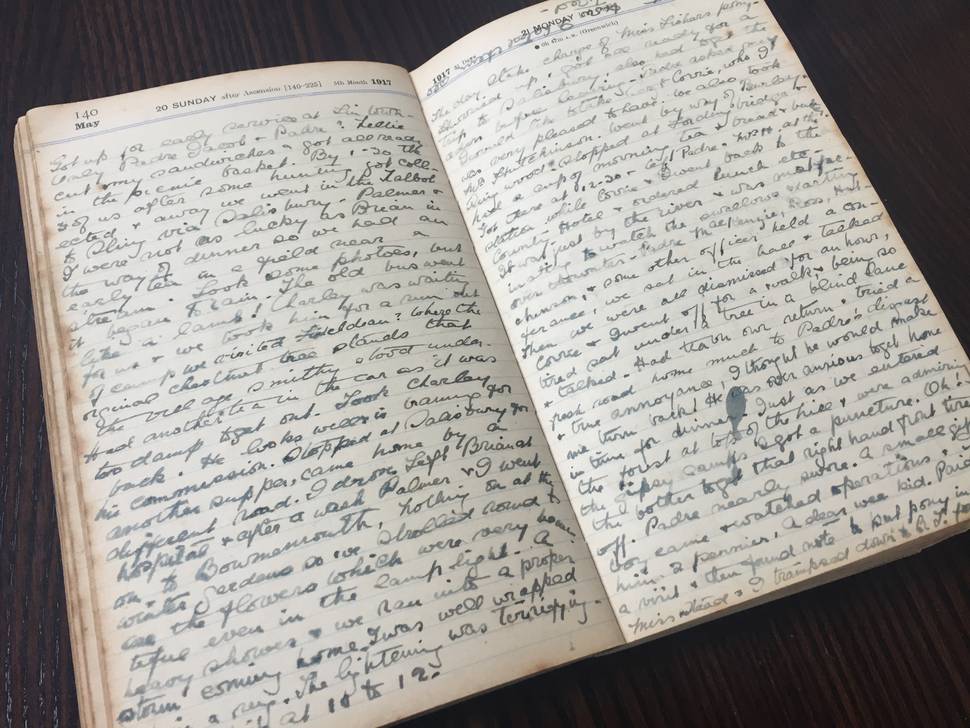 140
May
20 SUNDAY after Ascension [140-225] 5th Month 1917
Got up for early service at
only Padre Jacob & Padre? Leslie
cut my sandwiches & got all ready
in the picnic basket. By 1-30 the
3 of us after some hunting got coll-
ected & away we went in the Talbot
to Sling via Salisbury. Palmer &
I were not as lucky as Brian in
the way of dinner so we had an
early tea in a field near a
stream. Took some photos, but
it began to rain. The old bus went
like a lamb! Charley was waiting
for us & we took him for a run out
of camp we visited ? where the
original chestnut tree stands that
The village smithy stood under.
Had another tea in the car as it was
too damp to get out. Took Charley
back. He looks well & is training for
his commission. Stopped at Salisbury for
another supper, came home by a
different road. I drove. Left Brian at
hospital & after a wash Palmer & I went
on to Bowmemouth, nothing on at the
winter Gardens so we strolled round to
see the flowers which were very beau-
tiful even in the lamp light. A
heavy shower & we ran into a proper
storm coming home. I was well wrapped
in a rug. The lightening was terrifying.
at 10 to 12.
1917
21 MONDAY
(Greenwich)
The day. Stek. charge of Miss Fishers pony.
showed up, & got car ready for a
trip to Salisbury. also had to
before leaving. Padre asked me
to take & Corrie, who I
was very pleased to have. We also took
Hutchinson. Went by way of Burley.
Ring wood & stopped at Fordingbridge &
had a cup of morning tea & bread & butter
there at 12-30 - left Padre & at the
station while Corrie & I went back to the
County Hotel & ordered lunch etc -
It was just by the river & was most fac-
inating to watch the swallows darting
over the water. Padre Mackenzie, Ross, Hut-
chinson, & some other officer held a con-
ferance, we sat in the hall & talked
Then we were all dismissed for an hour,
Corrie & I went off for a walk & being so
tired sat under a tree in a blind lane
& talked. Had tea on our return & tried a
fresh road home much to Padre's disgust
& true annoyance, I thought he would make
me turn back! He was over anxious to get home
in time for dinner. Just as we entered
the forest at top of the hill & were admiring
the gipsy camps I got a puncture. Oh!
the bother to get that right hand front tire
off. Padre nearly swore. A small gipsy
boy came & watched operations. I
him 2 pennies, A dear wee kid. Paid
a visit & then found note to put pony in
Miss Stead & I tramped down to